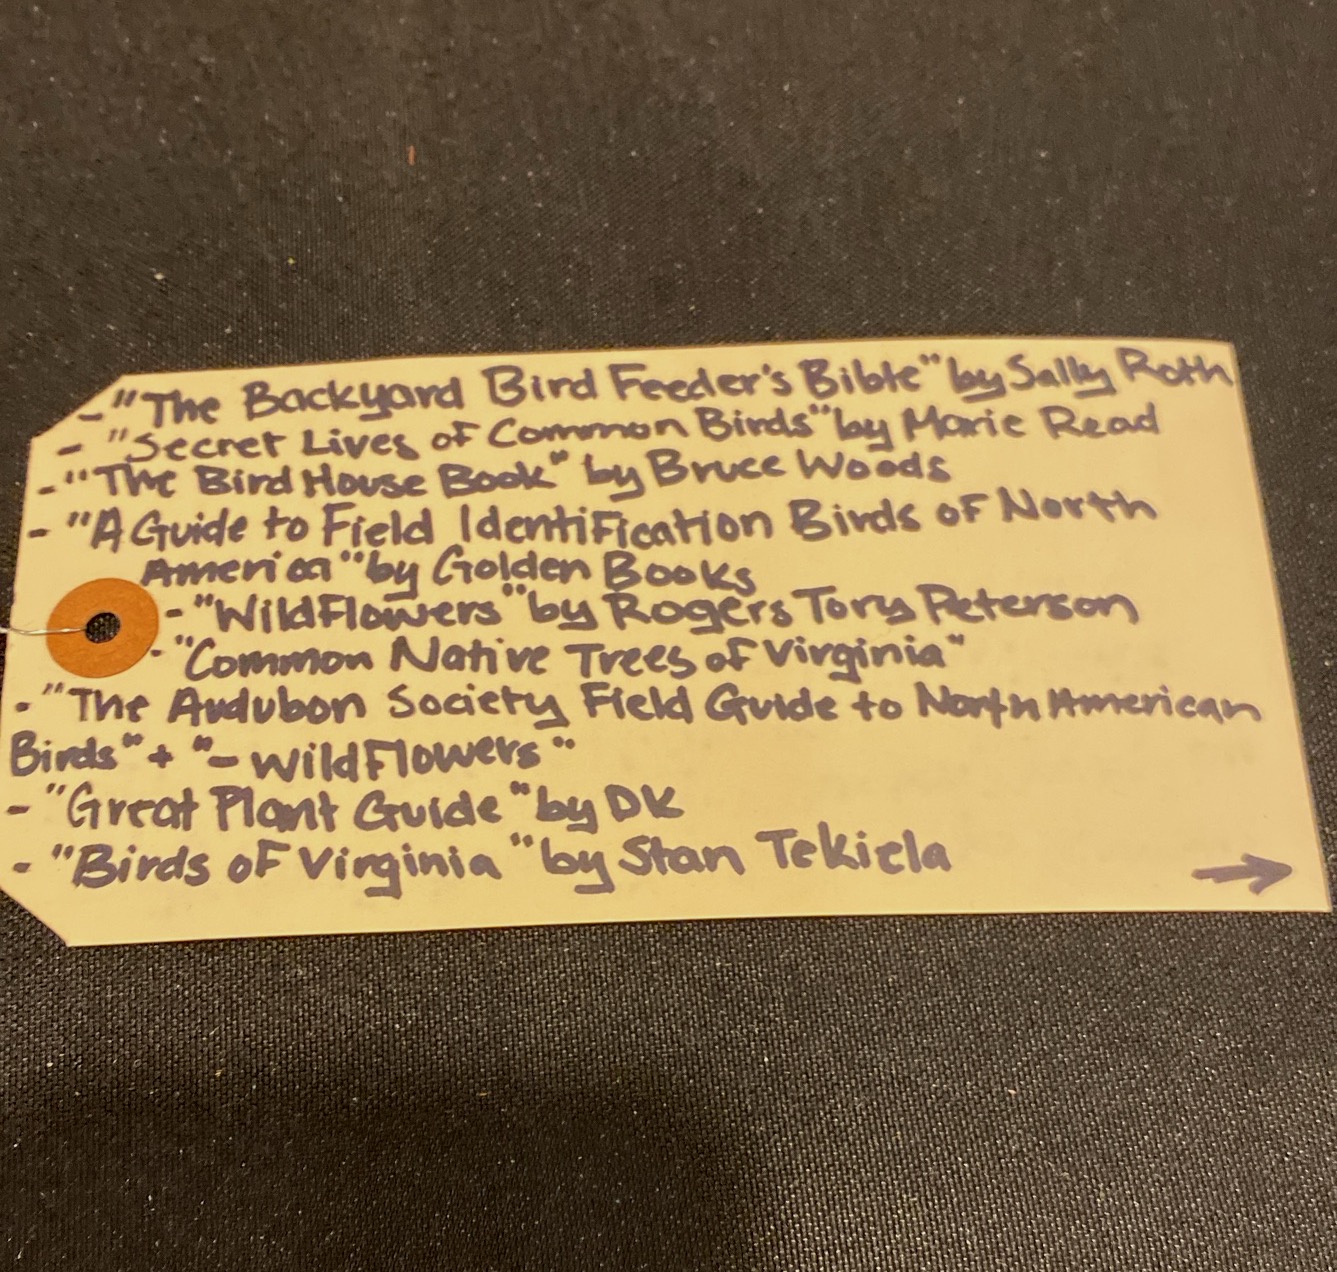 - "The Backyard Bird Feeder's Bible" by Sally Roth
- "Secret Lives of Common Birds" by Marie Read
- "The Bird House Book" by Bruce Woods
- "A Guide to Field Identification Birds of North
America" by Golden Books
- "Wildflowers" by Rogers Tory Peterson
- "Common Native Trees of Virginia"
- "The Audubon Society Field Guide to North American
Birds" + "- Wildflowers"
- "Great Plant Guide" by DK
- "Birds of Virginia" by Stan Tekiela →